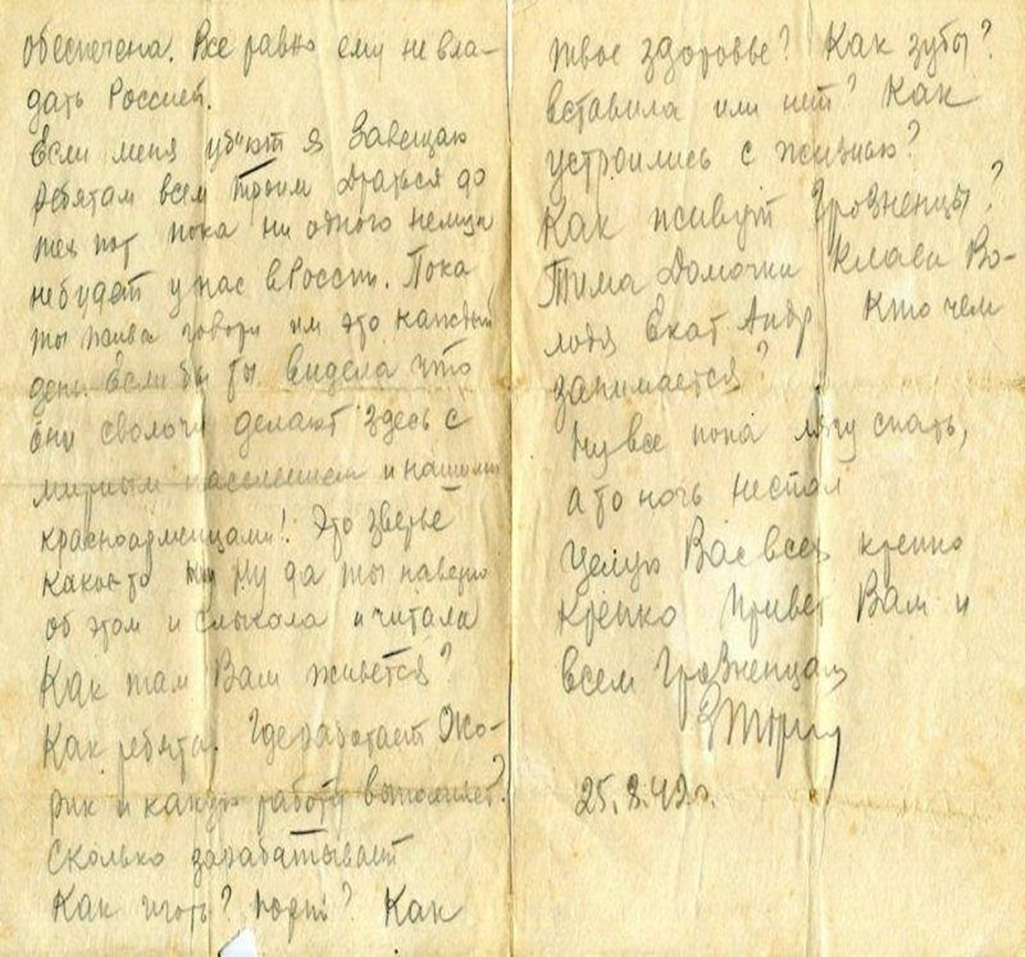 обеспечена. Все равно ему не вла-
дать Россией.
Если меня убьют я завещаю
ребятам всем троим драться до
тех пор пока ни одного немца
небудет у нас в России. Пока
ты жива говори им это каждый
день. Если бы ты видела что
они сволочи делают здесь с
мирным населением и нашими
красноармейцами! Это зверьё
какое-то Ну да ты наверно
об этом и слыхала и читала
Как там Вам живется?
Как ребята. Где работает Жо-
рик и какую работу выполняет?
Сколько зарабатывает
Как Игорь? Как
твое здоровье? Как зубы?
вставила или нет? Как
устроились с жизнью?
Как живут Грозненцы?
Тима Домочка Клава Во-
лодя Екат. Андр Кто чем
занимается?
Ну все пока лягу спать,
а то ночь неспал
Целую Вас всех крепко
крепко Привет Вам и
всем Грозненцам
25.8.42г.